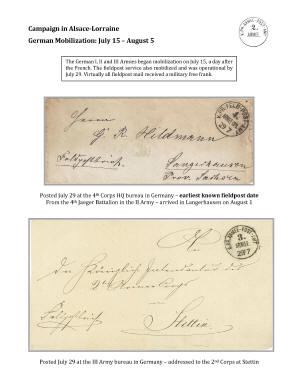 Campaign in Alsace-Lorraine
German Mobilization: July 15 – August 5
2.
ARMEE
The German I, II and III Armies began mobilization on July 15, a day after
the French. The fieldpost service also mobilized and was operational by
July 29. Virtually all fieldpost mail received a military free frank.
4.
29 7
Herrn
G. R. Hildmann
Feldpostbrief.
Sangerhausen
Prov. Sachsen
Posted July 29 at the 4th Corps HQ bureau in Germany – earliest known fieldpost date
From the 4th Jaeger Battalion in the II Army – arrived in Langerhausen on August 1
3.
ARMEE
29 7
An
die Königliche Intendantur des
2. Armee Corps
Feldpostbrief
Stettin
Posted July 29 at the III Army bureau in Germany – addressed to the 2nd Corps at Stettin